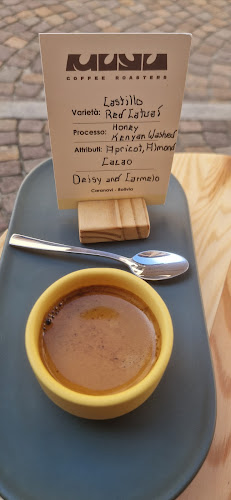 COFFEE ROASTERS
Castillo
Varietà: Red Catuai
Processa: Honey
Kenyan Washed
Attributi: Apricot, Almond
Cacao
Deisy and Carmelo
Caranavi - Bolivia